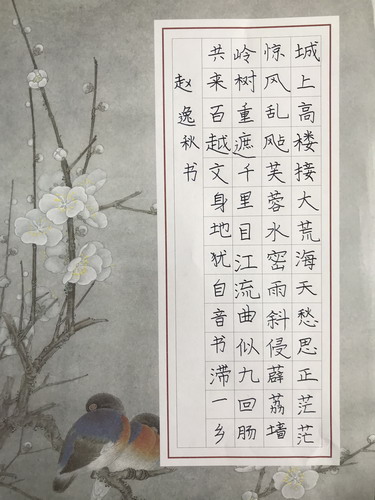 城上高楼接大荒海天愁思正茫茫
惊风乱飐芙蓉水密雨斜侵薜荔墙
岭树重遮千里目江流曲似九回肠
共来百越文身地犹自音书滞一乡
赵逸秋书